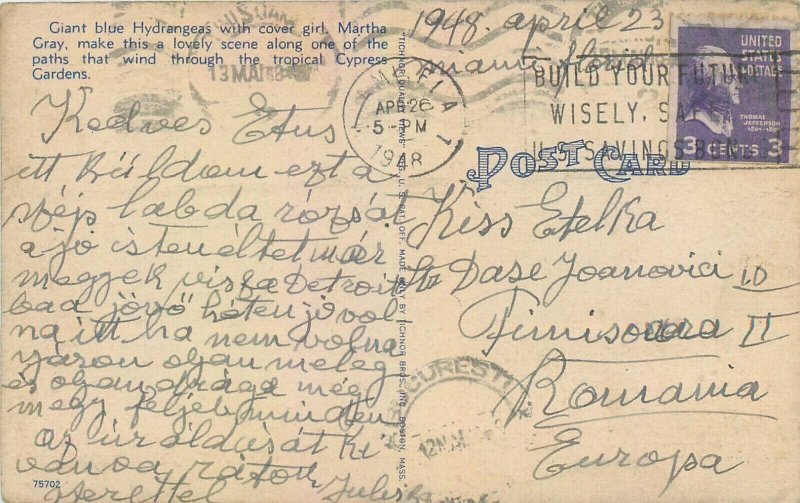 Giant blue Hydrangeas with cover girl, Martha
Gray, make this a lovely scene along one of the
paths that wind through the tropical Cypress
Gardens.
1948. april 23
miami florid
Kedves Etus
itt küldom ezt a
szép labda rózsát
a jó isten éltet már
megyek vissza Detroit
ba a jövő héten jó vol
na itt ha nem volna
olyan meleg
és olyan drága még
megy feljeb minden
az úr áldását ki
vánva rátok
Juliska
75702
APR 26
5-PM
1948
BUILD YOUR FUTURE
WISELY, SA
U.S. SAVINGS BONDS
UNITED
STATES
POSTAGE
THOMAS
JEFFERSON
3 CENTS 3
POST CARD
Kiss Etelka
Str Dase Joanovici 10
Timisoara II
Romania
Europa
"TICHNOR QUALITY VIEWS" REG. U. S. PAT. OFF. MADE ONLY BY TICHNOR BROS., INC. BOSTON, MASS.
BUCURESTI